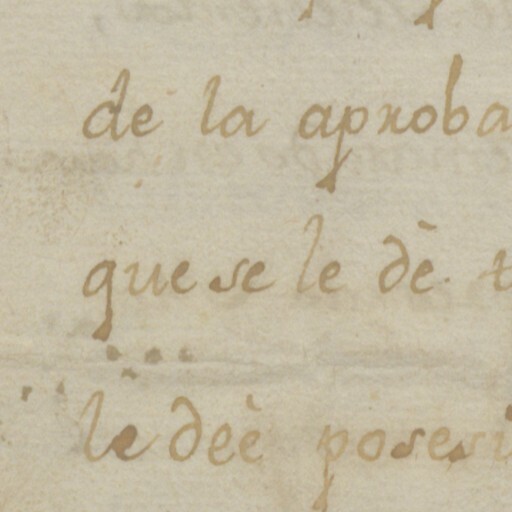 de la aproba
que se le dè t
le deè posesi